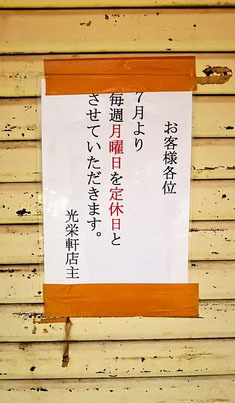 お客様各位
7月より
毎週月曜日を定休日と
させていただきます。
光栄軒店主